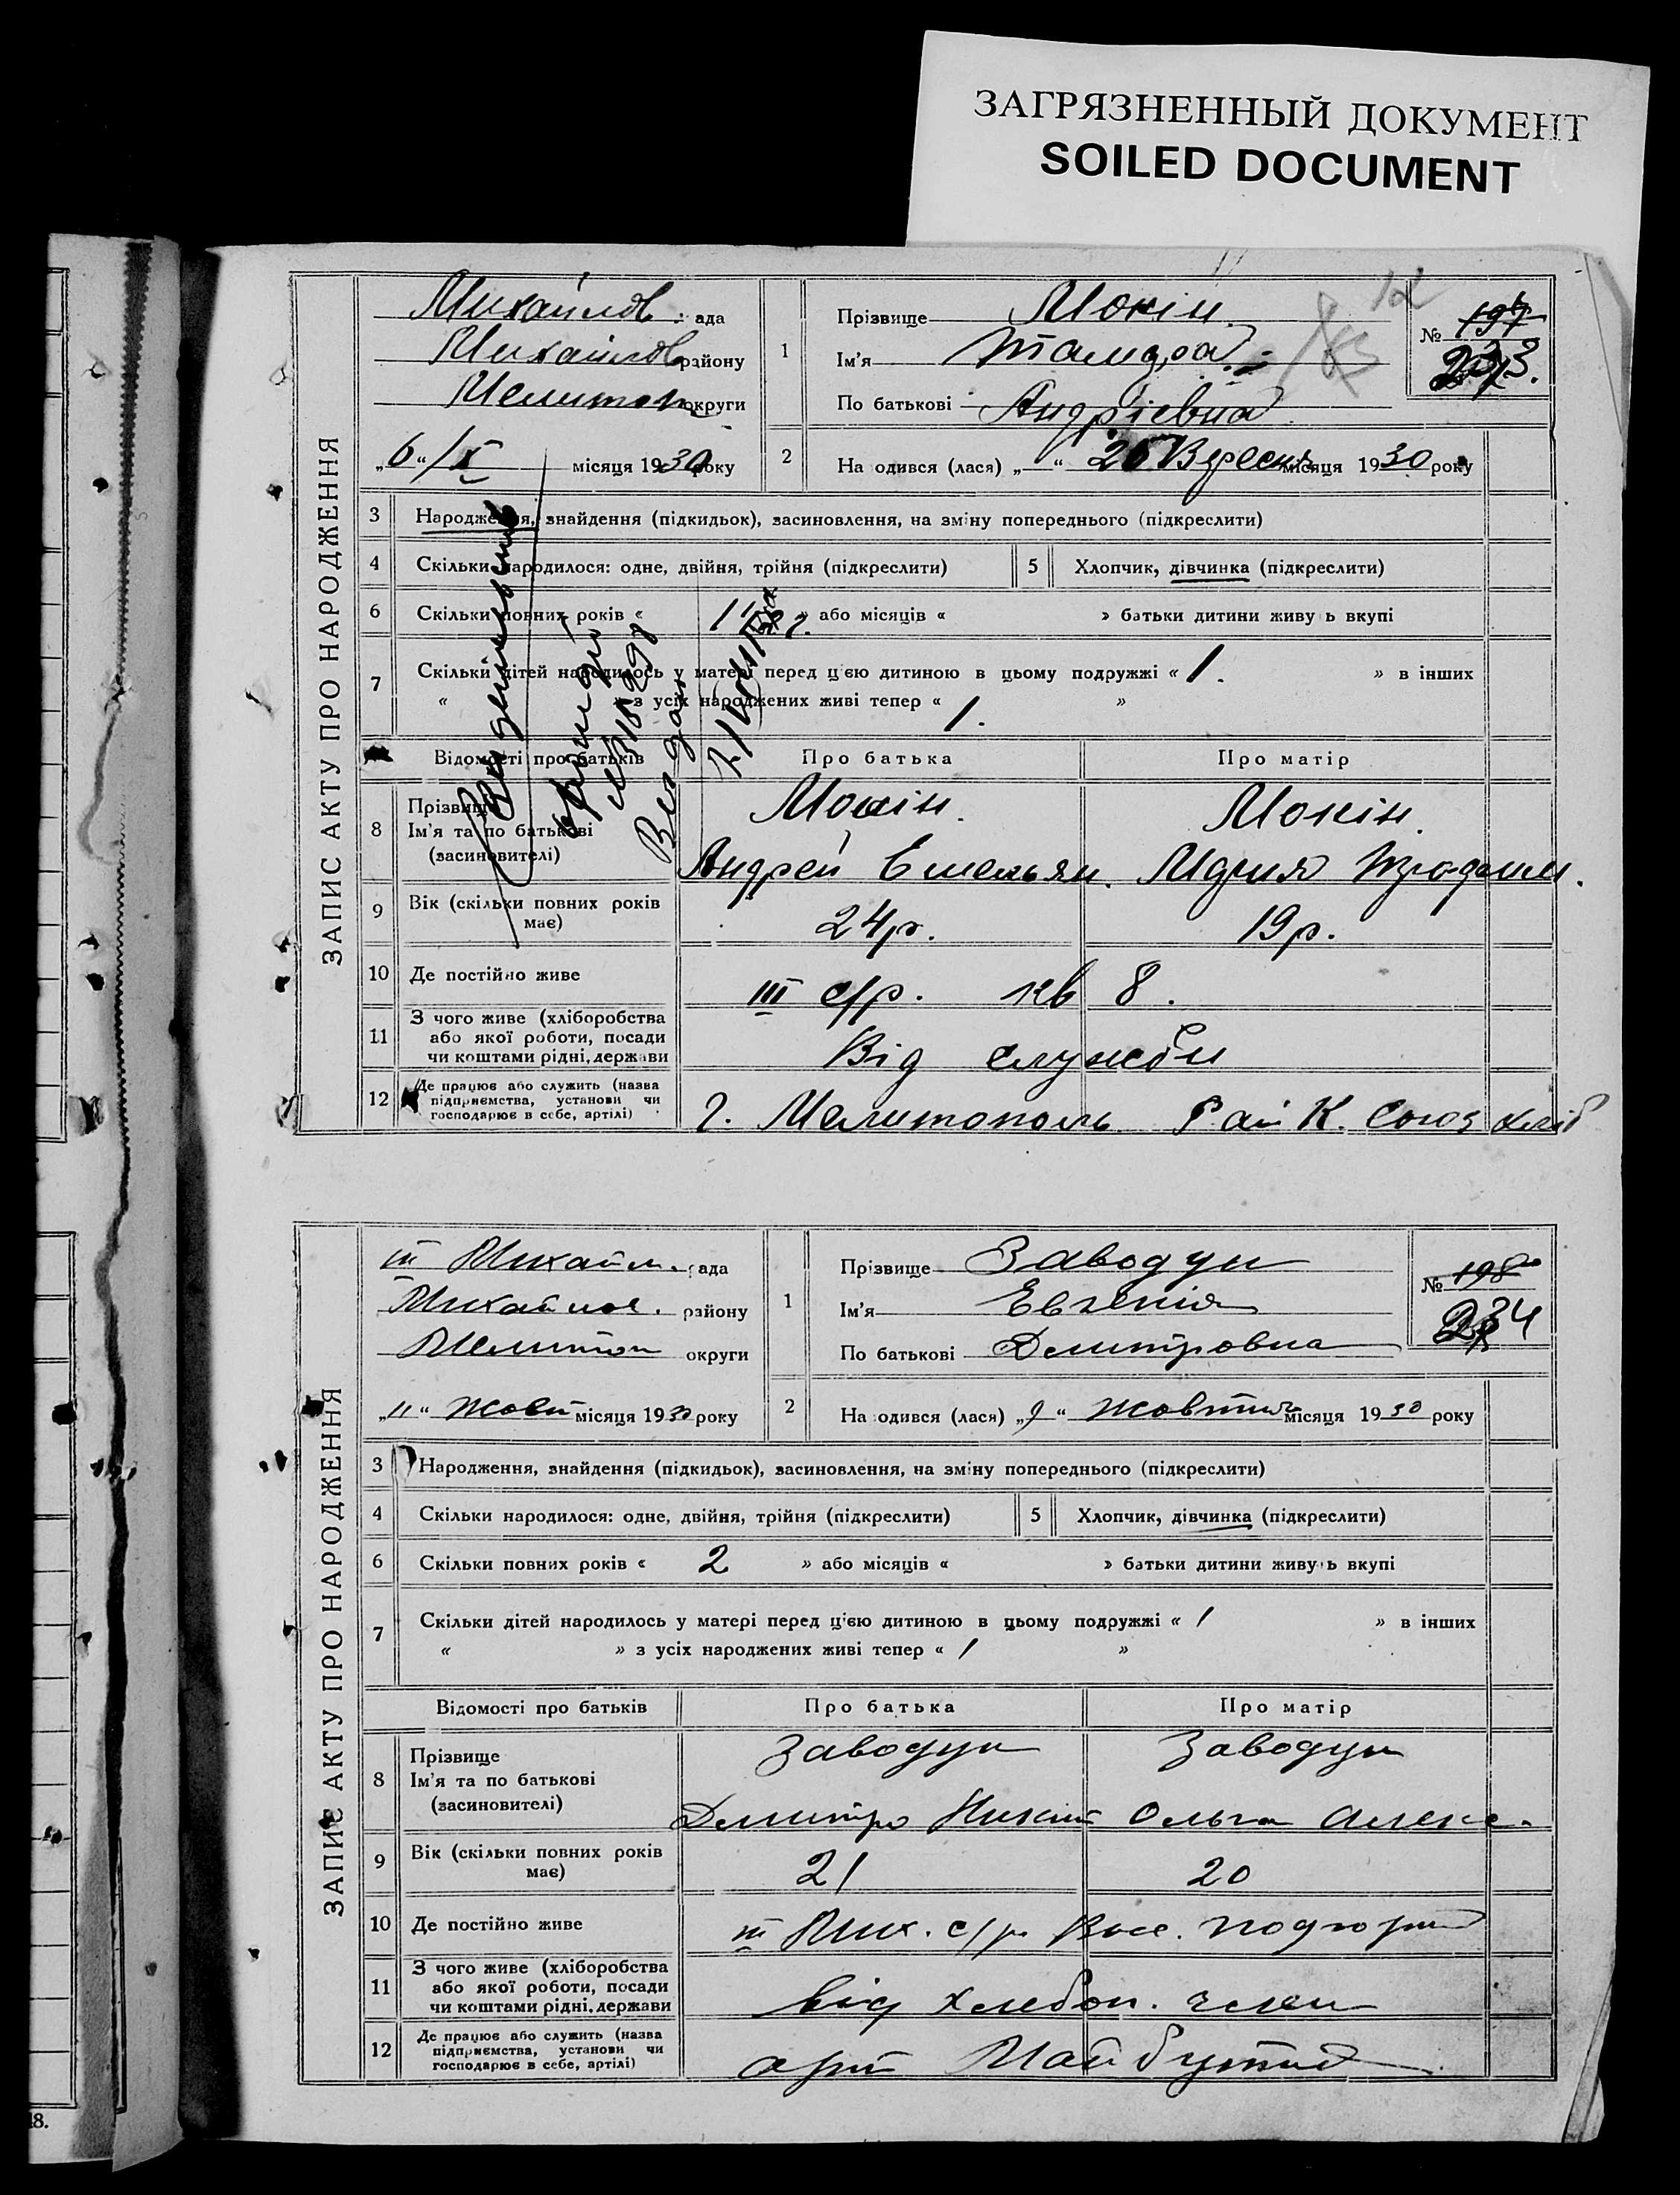 ЗАГРЯЗНЕННЫЙ ДОКУМЕНТ
SOILED DOCUMENT
12
ЗАПИС АКТУ ПРО НАРОДЖЕННЯ
Михайлов. рада
Михайлов району
Мелитоп округи
„6“ /X місяця 1930 року
1 Прізвище Мокін.
Ім'я Тамара
По батькові Андріевна
№ 197
233.
2 Народився (лася) „ “ 26 Вересн місяця 1930 року
3 Народження, знайдення (підкидьок), засиновлення, на зміну попереднього (підкреслити)
4 Скільки народилося: одне, двійня, трійня (підкреслити)
5 Хлопчик, дівчинка (підкреслити)
6 Скільки повних років « » або місяців « » батьки дитини живуть вкупі
7 Скільки дітей народилось у матері перед цією дитиною в цьому подружжі « 1. » в інших
« » з усіх народжених живі тепер « 1. »
Відомості про батьків Про батька Про матір
8 Прізвище
Ім'я та по батькові
(засиновителі)
Мокін. Мокін.
Андрей Емельян. Мария
9 Вік (скільки повних років має) 24р. 19р.
10 Де постійно живе III с/р. кв 8.
11 З чого живе (хліборобства
або якої роботи, посади
чи коштами рідні, держави
Від служби
12 Де працює або служить (назва
підприємства, установи чи
господарює в себе, артілі)
г. Мелитополь. Рай К. Союз хліб
ЗАПИС АКТУ ПРО НАРОДЖЕННЯ
III Михайл. рада
Михайлов. району
Мелитоп округи
„11“ Жовт місяця 1930 року
1 Прізвище Заводун
Ім'я Евгенія
По батькові Демитровна
№ 198
234
2 Народився (лася) „9“ Жовтня місяця 1930 року
3 Народження, знайдення (підкидьок), засиновлення, на зміну попереднього (підкреслити)
4 Скільки народилося: одне, двійня, трійня (підкреслити)
5 Хлопчик, дівчинка (підкреслити)
6 Скільки повних років « 2 » або місяців « » батьки дитини живуть вкупі
7 Скільки дітей народилось у матері перед цією дитиною в цьому подружжі « 1 » в інших
« » з усіх народжених живі тепер « 1 »
Відомості про батьків Про батька Про матір
8 Прізвище
Ім'я та по батькові
(засиновителі)
Заводун Заводун
Демитро Никит Ольга Алекс.
9 Вік (скільки повних років має) 21 20
10 Де постійно живе III Мих. с/р.
11 З чого живе (хліборобства
або якої роботи, посади
чи коштами рідні, держави
від хлебоп.
12 Де працює або служить (назва
підприємства, установи чи
господарює в себе, артілі)
арт Майбутнє
48.